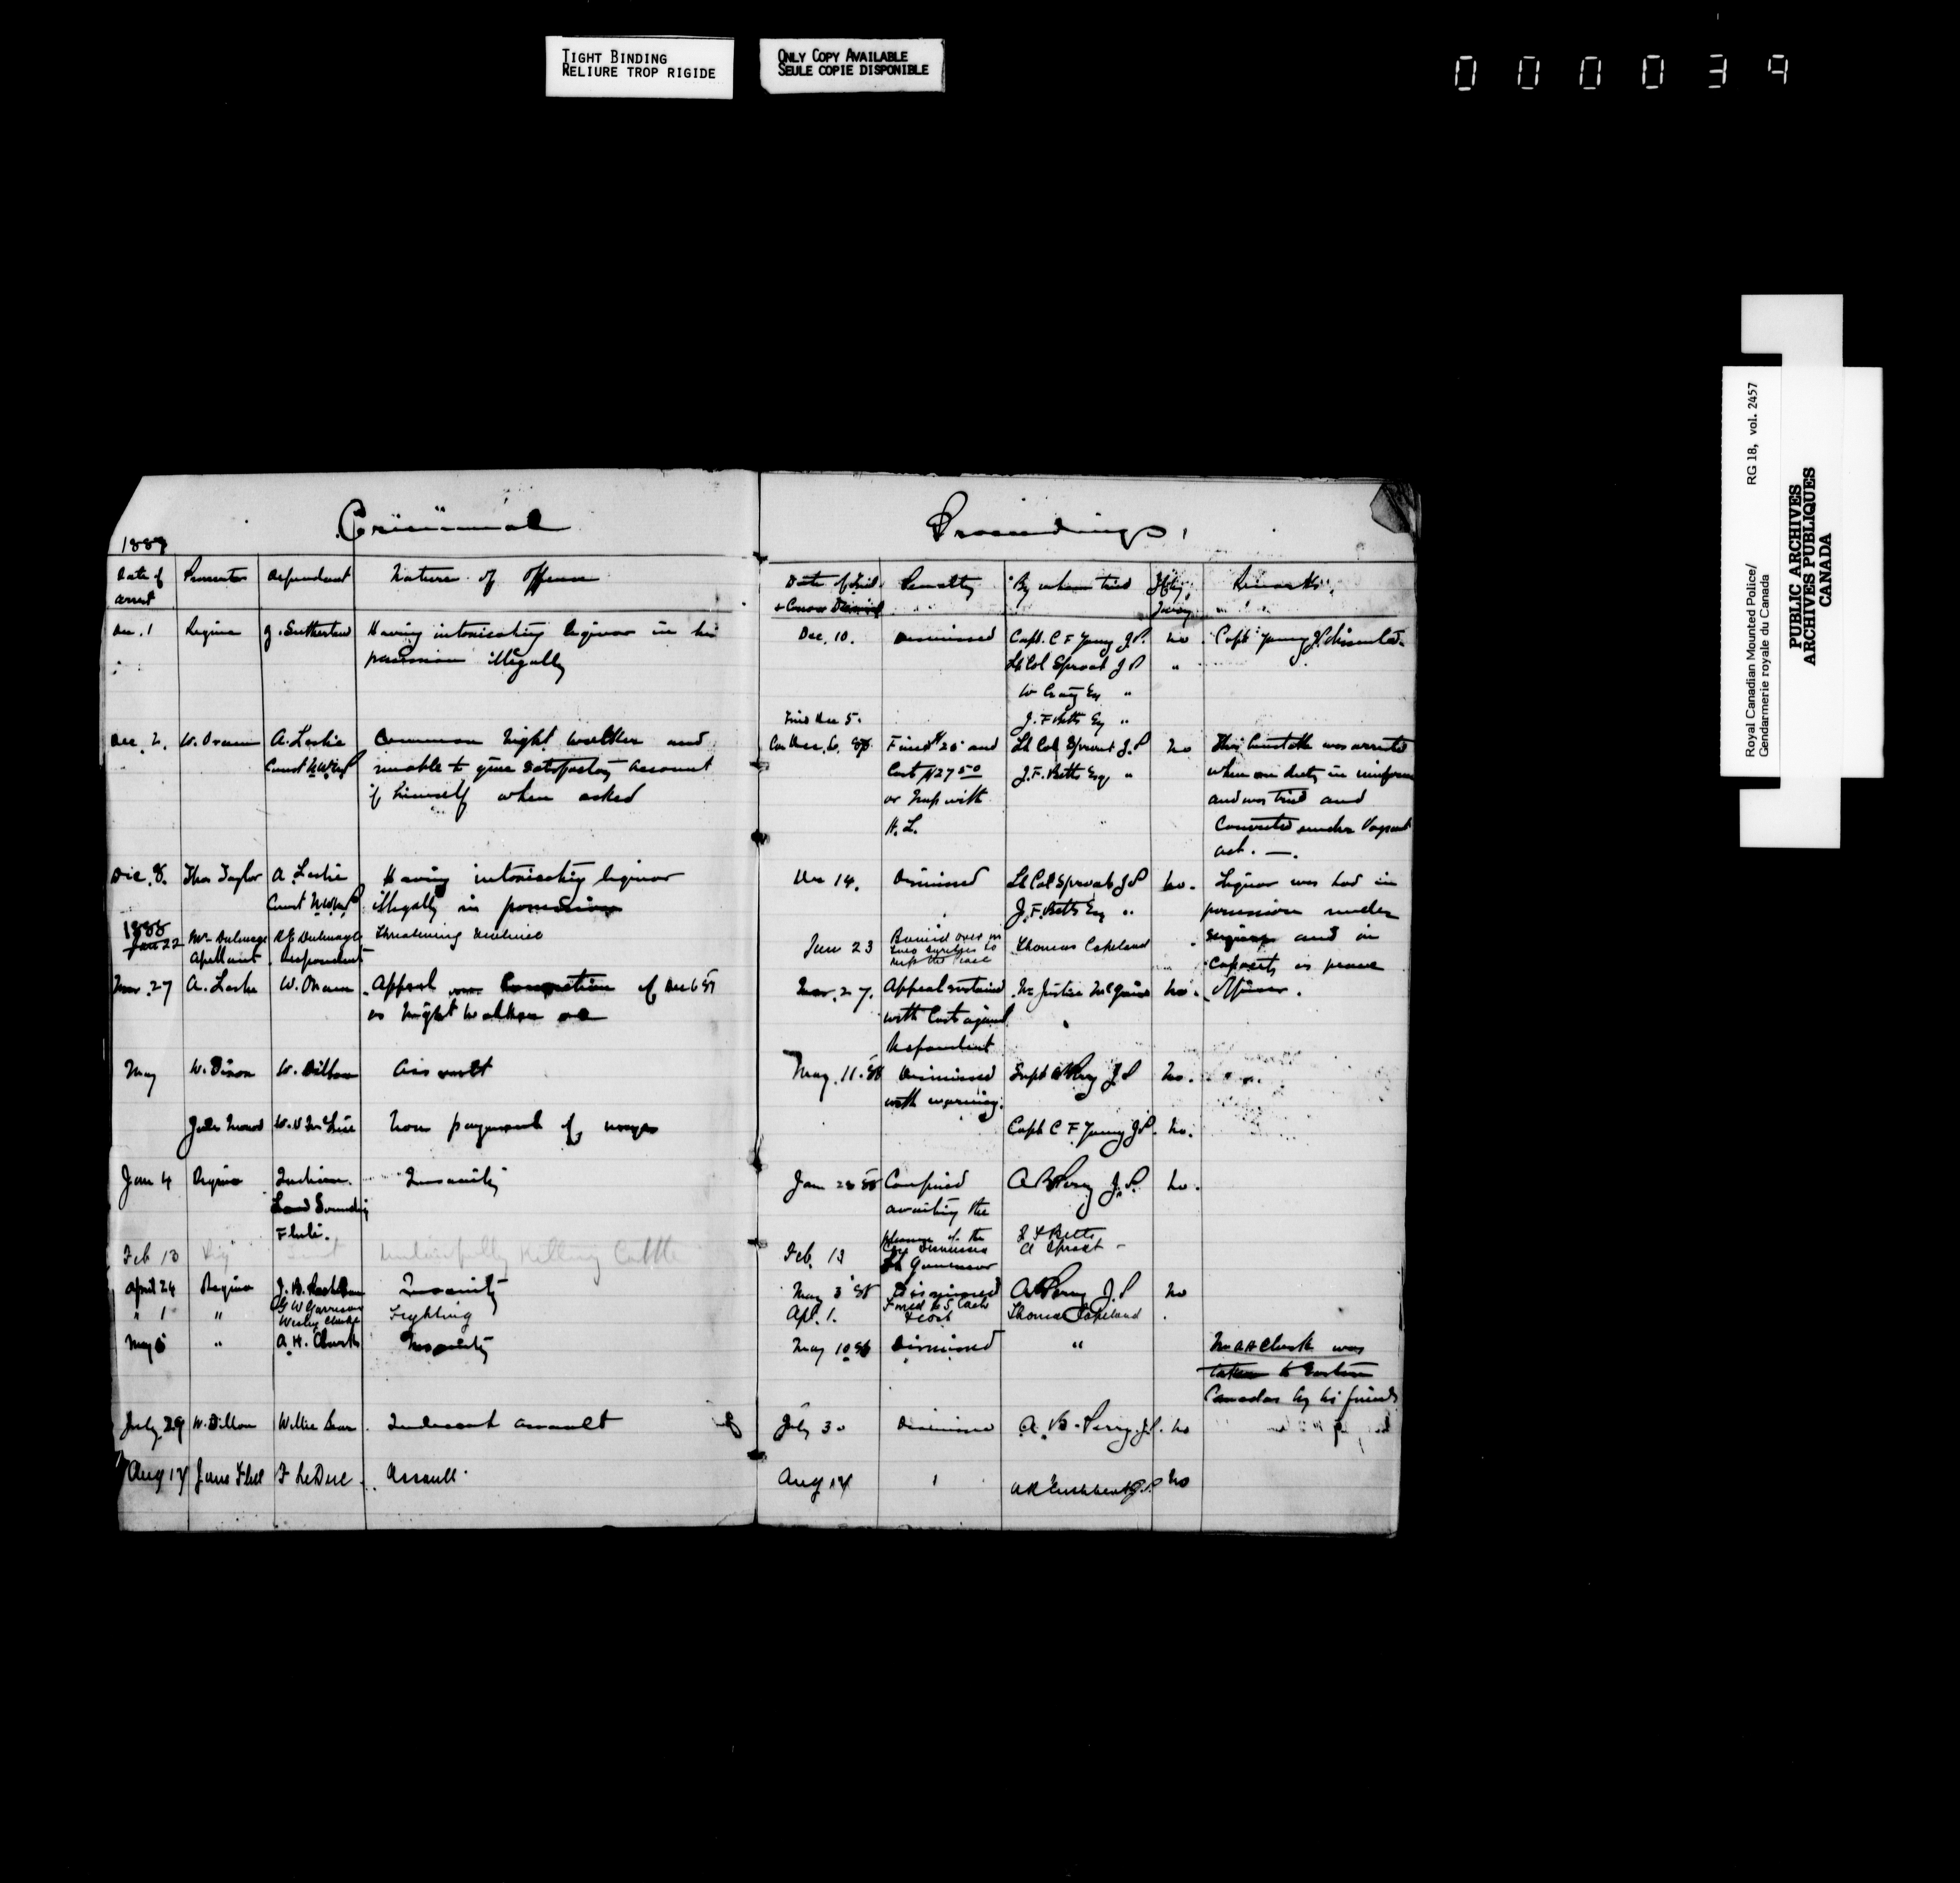 TIGHT BINDING
RELIURE TROP RIGIDE
ONLY COPY AVAILABLE
SEULE COPIE DISPONIBLE
0 0 0 0 3 9
Royal Canadian Mounted Police/ RG 18, vol. 2457
Gendarmerie royale du Canada
PUBLIC ARCHIVES
ARCHIVES PUBLIQUES
CANADA
Criminal Proceedings
1887
Date of arrest
Defendant
Nature of Offence
Date of Trial
Penalty
By whom tried
If by Jury
Remarks
Dec. 1 Regina J. Sutherland Having intoxicating liquor in his
possession illegally
Dec. 10. Dismissed Capt. C F Young J.P. no
Lt Col Sproat J P "
W Craig Esq "
J. F Betts Esq "
Tried Dec 5.
Dec. 2. W. Oram A. Leslie Common Night Walker and
Const NWMP unable to give satisfactory account
of himself when asked
Con Dec. 6. 87. Fined $20 and Lt Col Sproat J.P no
Costs $27 50 J.F. Betts Esq "
or Imp with
H. L.
This Constable was arrested
when on duty in uniform
and was tried and
Convicted under Vagrant
act. —.
Dec. 8. Thos Taylor A. Leslie Having intoxicating liquor
Const NWMP illegally in possession
Dec 14. Dismissed Lt Col Sproat J P no.
J. F. Betts Esq "
Liquor was had in
possession under
and in
capacity as peace
Officer.
1888
Jan 22 Threatening
Appellant Respondent
Jan 23 Bound over in
two sureties to
keep the Peace
Thomas Copeland
Mar. 27 A. Leslie W. Oram Appeal of Dec 6 87
as Night Walker
Mar. 27. Appeal sustained Mr Justice McGuire no.
with Costs against
Respondent
May W. Dixon W. Dillon Assault
May. 11. 88 Dismissed Supt Perry J P no.
with warning.
Non payment of wages
Capt C F Young J.P. no.
Jan 4 Regina Indian. Insanity
Loud Sounding
Flute.
Jan 28 88 Confined A B Perry J.P. no.
awaiting the
pleasure of the
Lt Governor
Feb 13 Unlawfully Killing Cattle
Feb. 13 Case Dismissed
J F Betts
A Sproat
April 24 Regina Insanity
May 3 88 Dismissed A B Perry J. P no
" 1 " G W Garrison
Wesley Clarke
Fighting
Apl. 1. Fined $5 each
& cost
Thomas Copeland
May 5 " A. H. Clark Insanity
May 10 88 Dismissed "
Mr A H Clark was
taken to Eastern
Canada by his friends
July 29 W. Dillon Indecent assault
July 30 Dismissed A. B. Perry. J.P. no
Aug 14 F LeDuc Assault.
Aug 14 J.P no